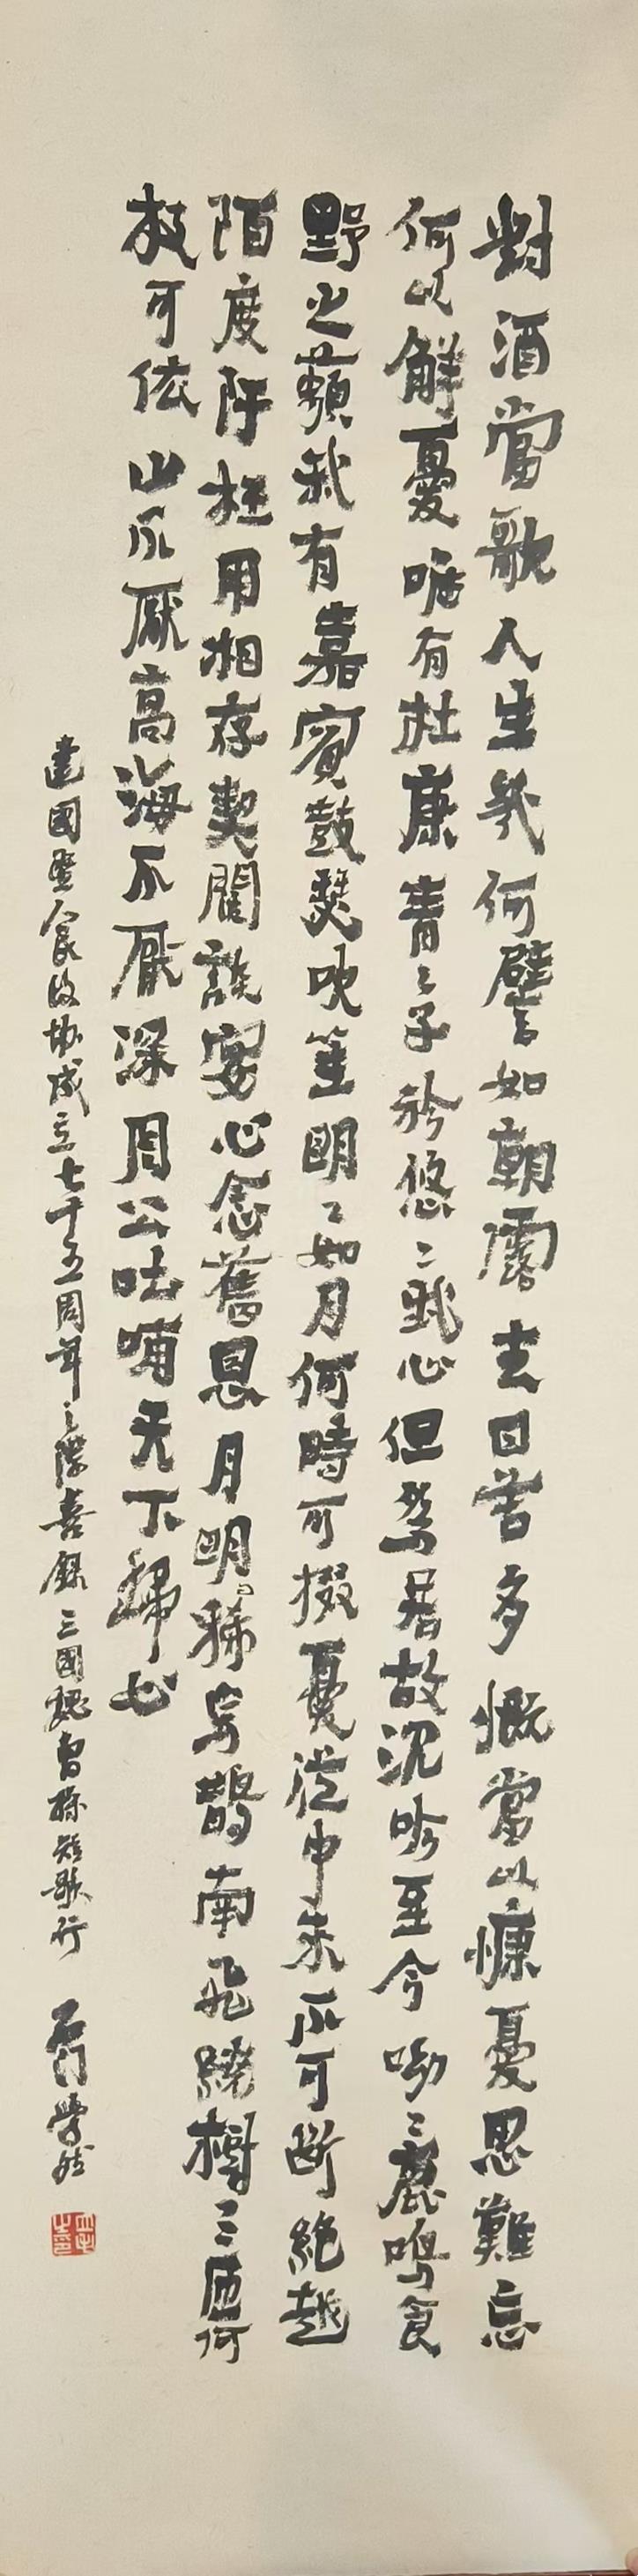 對酒當歌人生幾何譬如朝露去日苦多慨當以慷憂思難忘
何以解憂唯有杜康青〻子衿悠〻我心但為君故沉吟至今呦〻鹿鳴食
野之蘋我有嘉賓鼓瑟吹笙明〻如月何時可掇憂從中來不可斷絕越
陌度阡枉用相存契闊談宴心念舊恩月明〻稀烏鵲南飛繞樹三匝何
枝可依山不厭高海不厭深周公吐哺天下歸心
建國暨人民政協成立七十五周年之際喜錄三國魏曹操短歌行